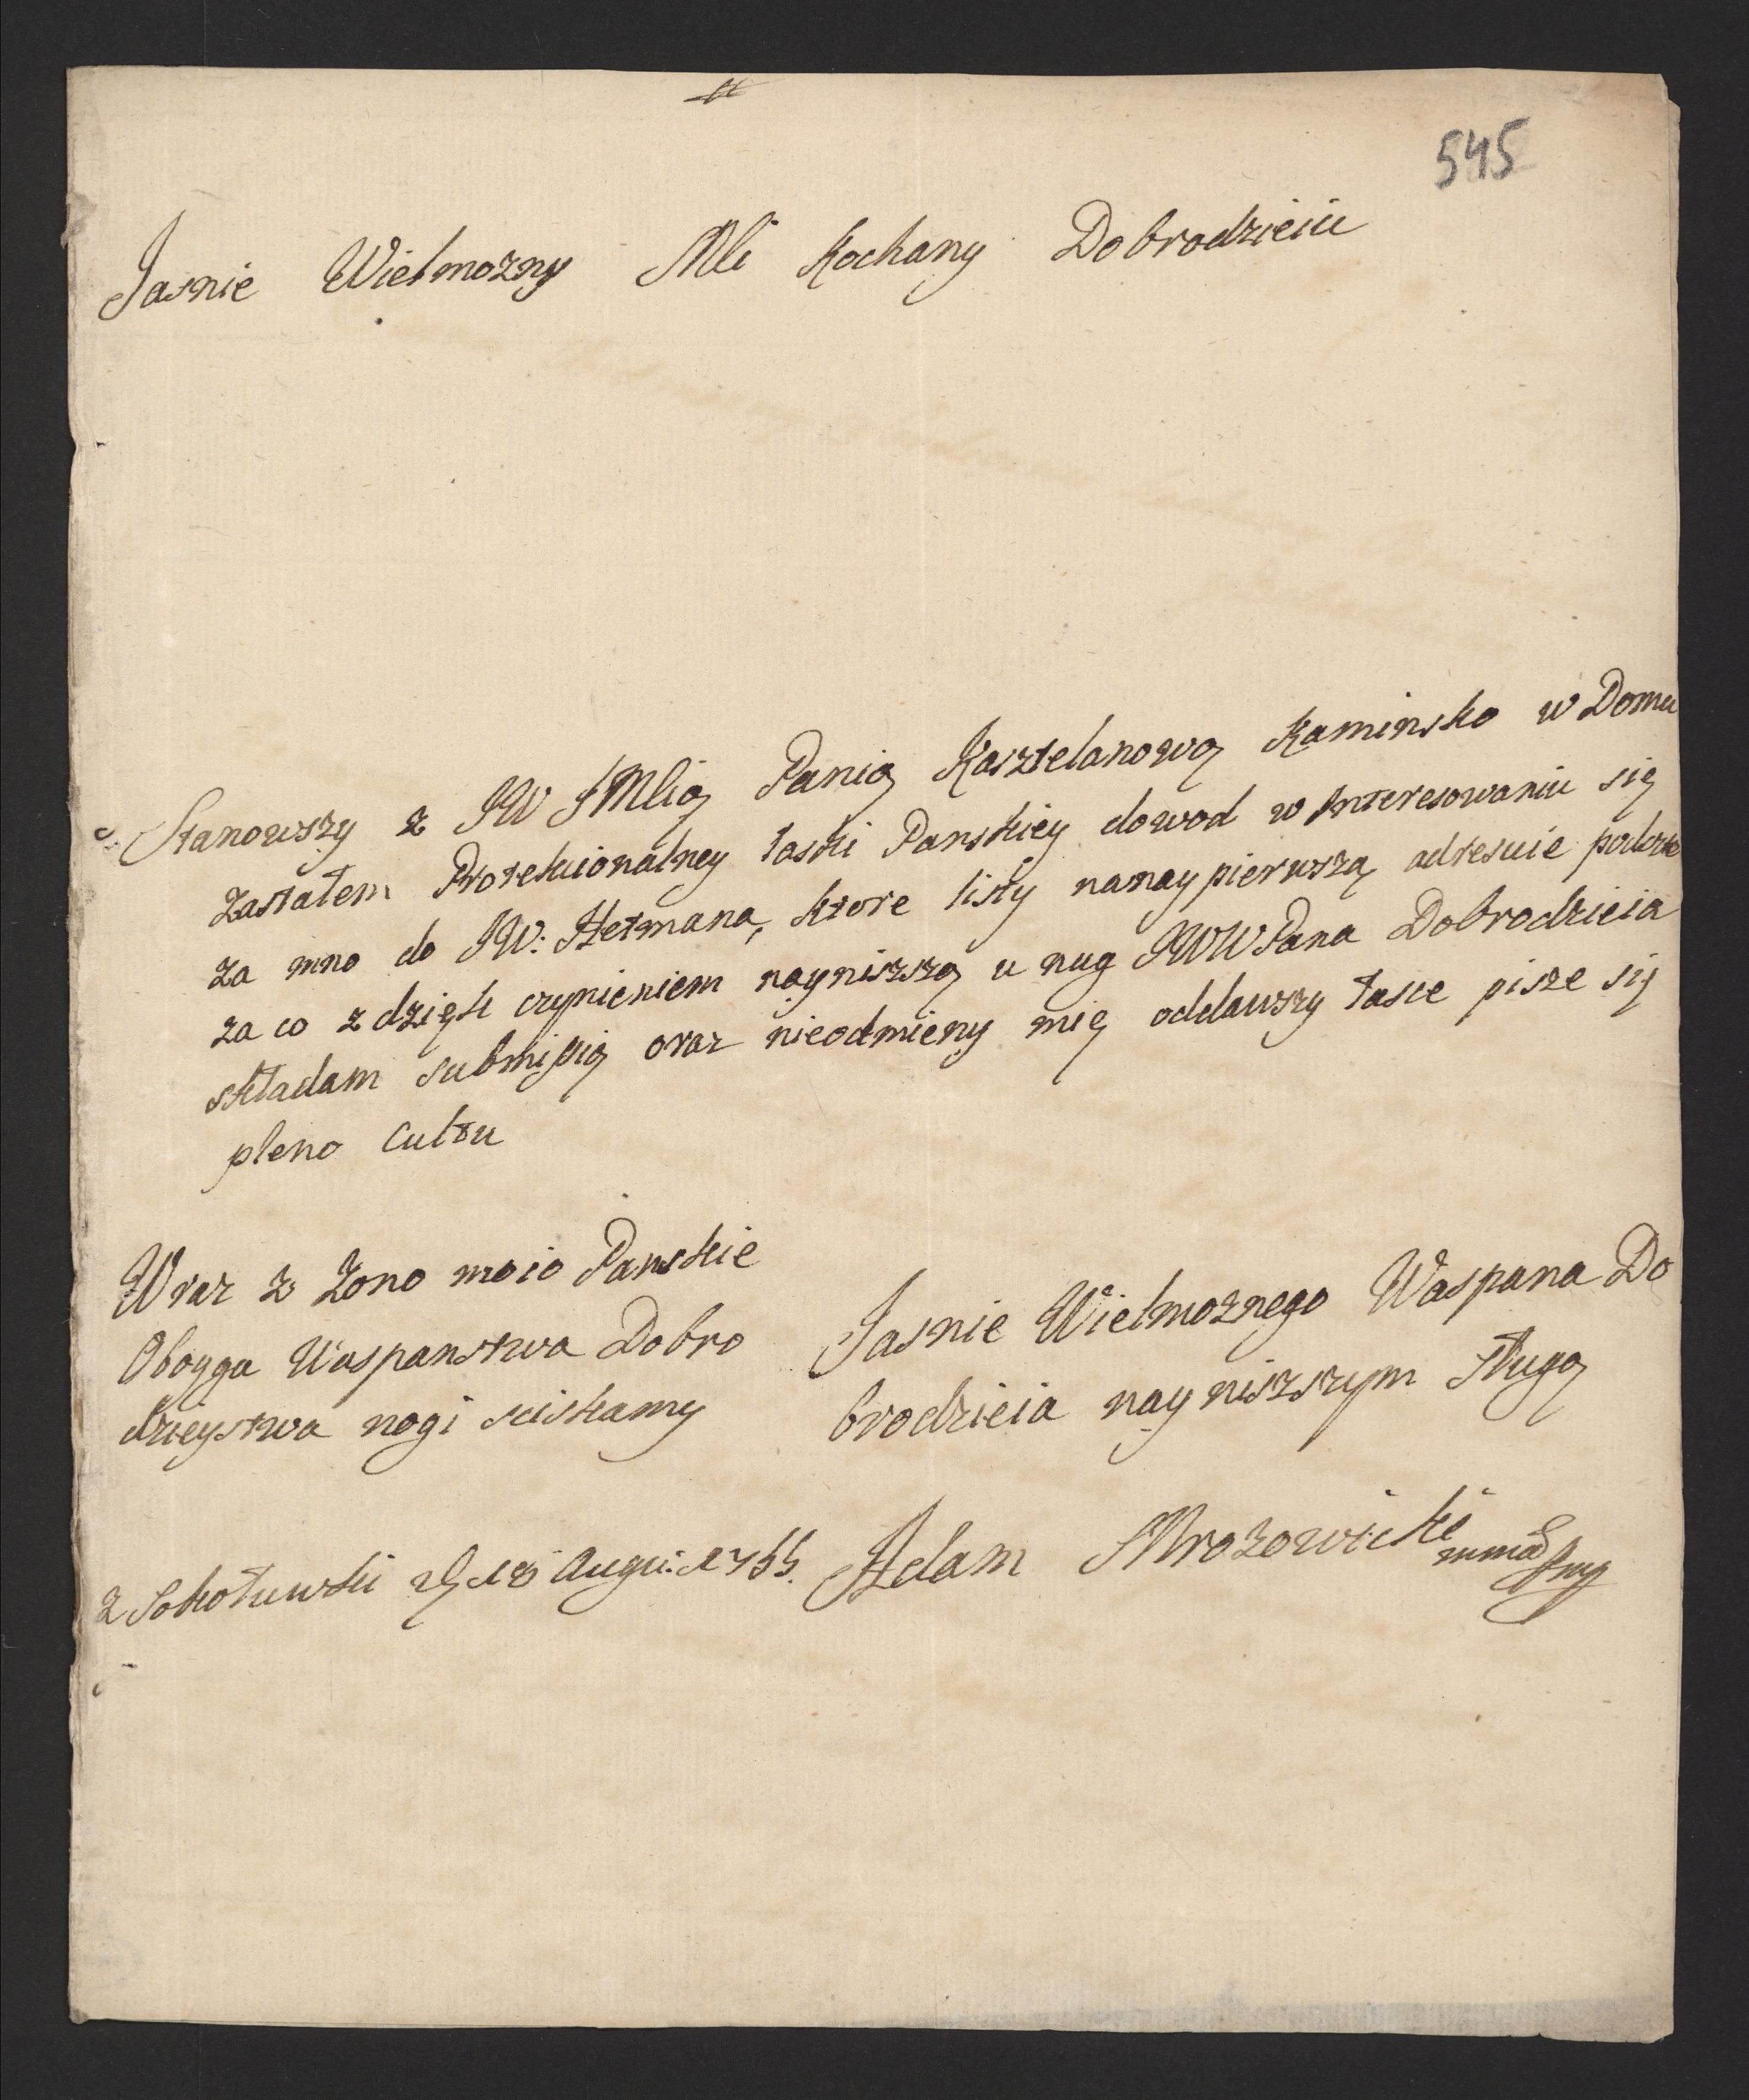 545
Jasnie Wielmozny Mci Kochany Dobrodzieiu
Stanowszy z JW JMCią Panią Kasztelanową Kaminsko w Domu
zastałem Protekcionalney łaski Panskiey dowod w Interesowaniu się
za mno do JW: Hetmana, ktore listy nanaypierwszą adresuie
za co z dzięk czynieniem nayniszszą u nug JWWPana Dobrodzieia
składam submissią oraz nieodmieny mię oddawszy łasce pisze się
pleno Cultu
Wraz z Zono moio Panskie
Oboyga Waspanstwa Dobro
dzieystwa nogi sciskamy
Jasnie Wielmoznego Waspana Do
brodzieia nayniszszym sługą
Adam Mrozowicki
z Sokołuwki d 18 Augu: 1755.